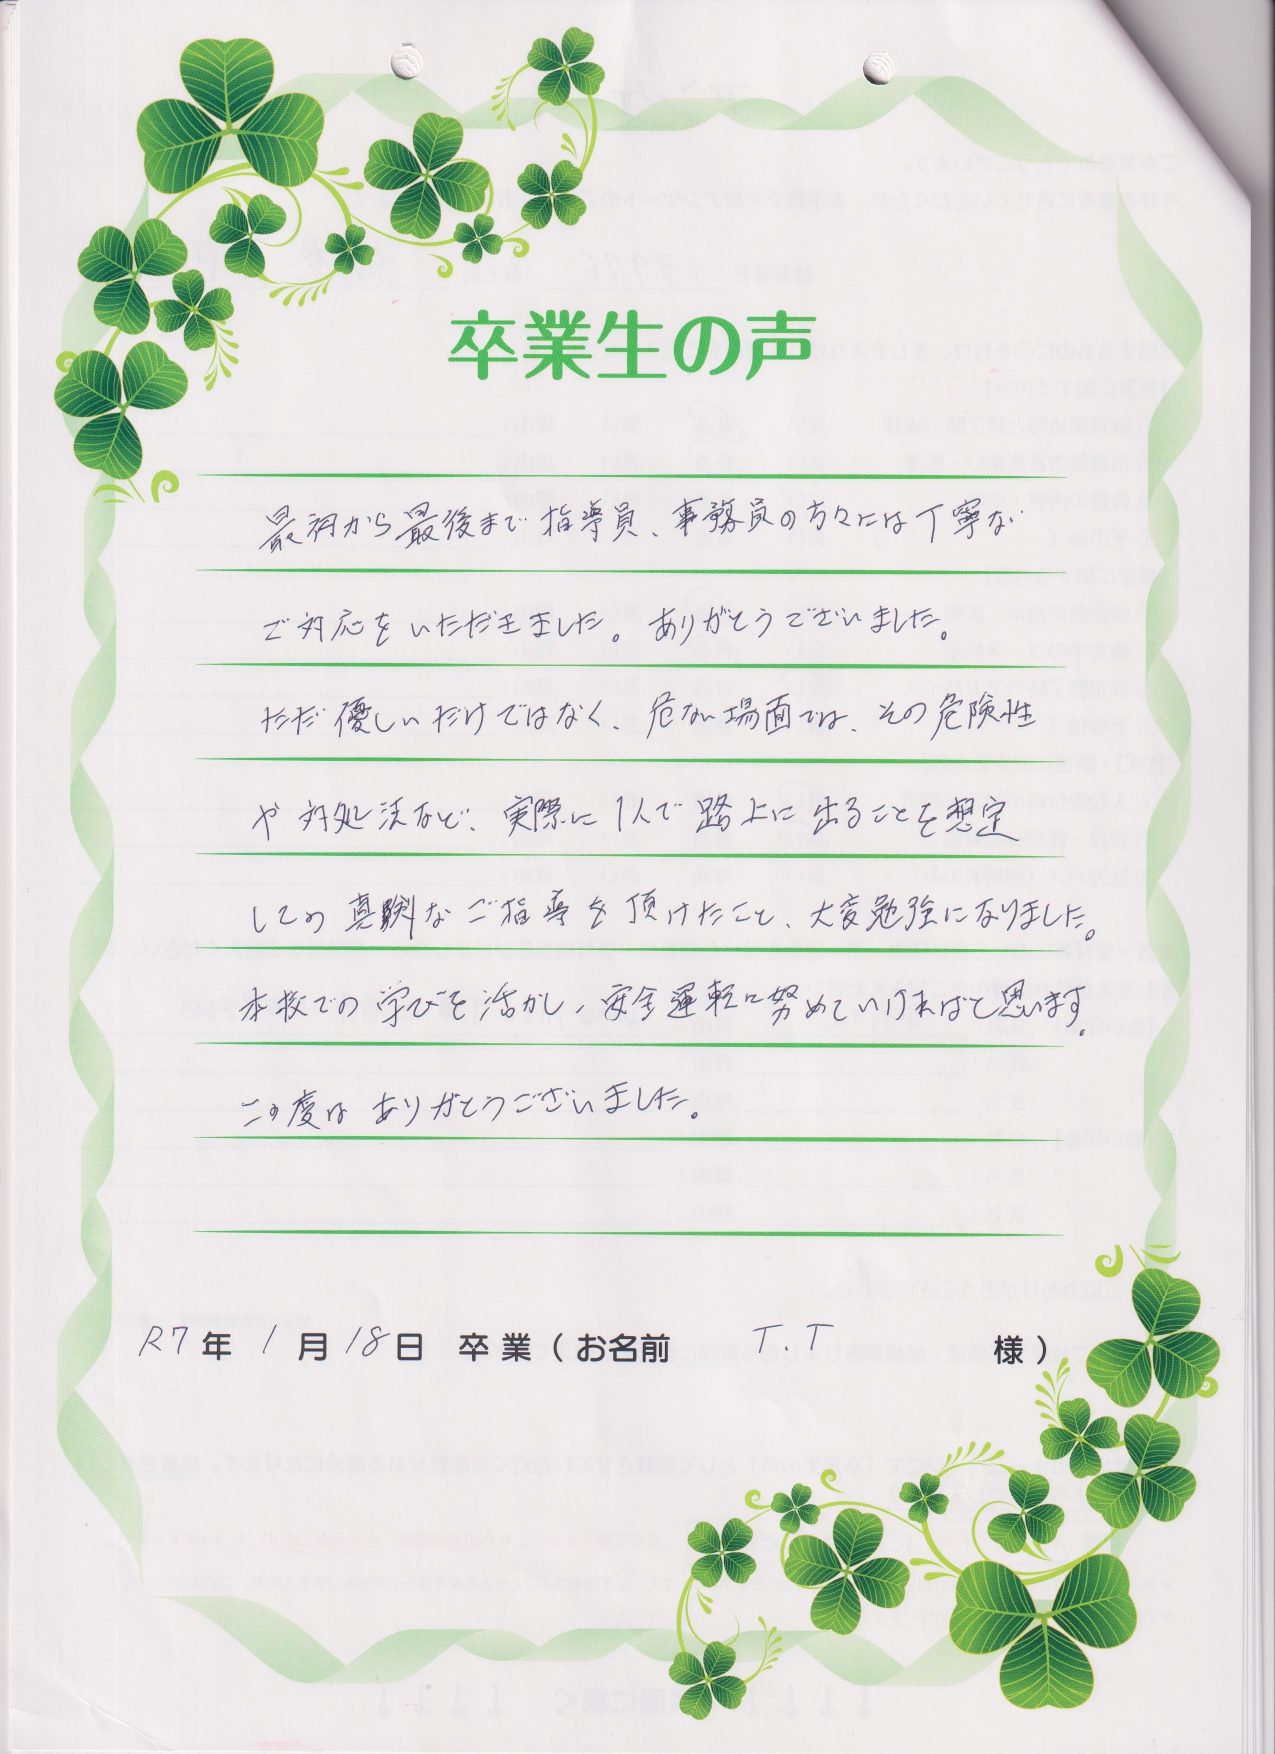 卒業生の声
最初から最後まで指導員、事務員の方々には丁寧な
ご対応をいただきました。ありがとうございました。
ただ優しいだけではなく、危ない場面では、その危険性
や対処法など、実際に1人で路上に出ることを想定
しての真剣なご指導を頂けたこと、大変勉強になりました。
本校での学びを活かし、安全運転に努めていければと思います。
この度はありがとうございました。
R7年1月18日 卒業(お名前 T.T 様)